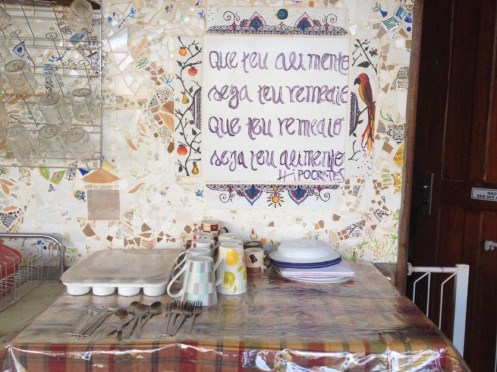 que teu alimento
seja teu remedio
que teu remedio
seja teu alimento
HiPOCRATES